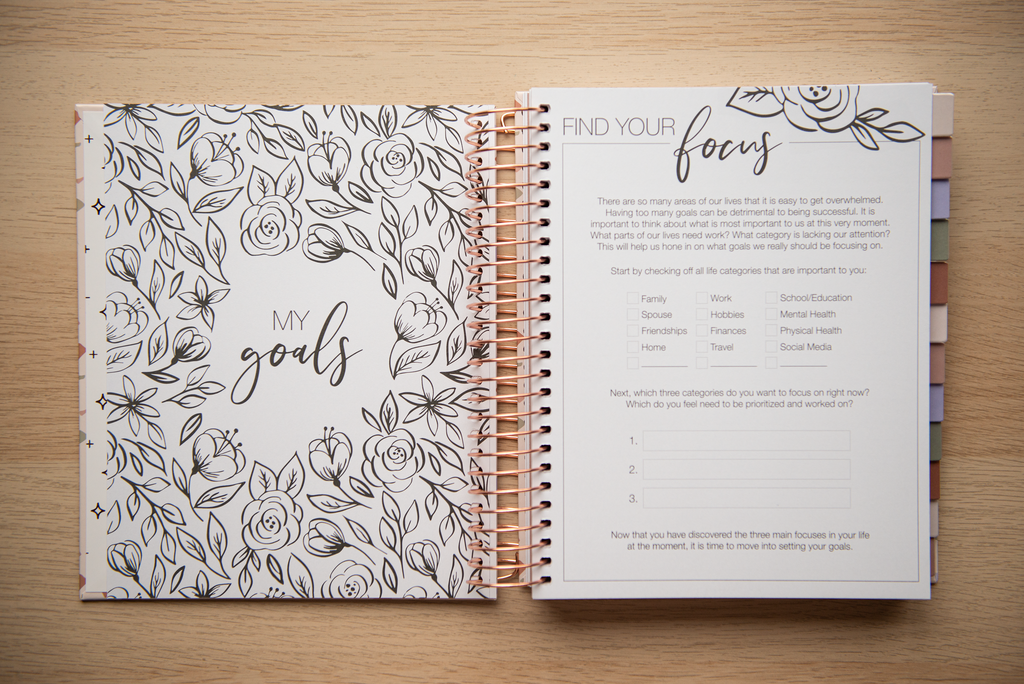 MY
goals
FIND YOUR focus
There are so many areas of our lives that it is easy to get overwhelmed.
Having too many goals can be detrimental to being successful. It is
important to think about what is most important to us at this very moment.
What parts of our lives need work? What category is lacking our attention?
This will help us hone in on what goals we really should be focusing on.
Start by checking off all life categories that are important to you:
Family Work School/Education
Spouse Hobbies Mental Health
Friendships Finances Physical Health
Home Travel Social Media
Next, which three categories do you want to focus on right now?
Which do you feel need to be prioritized and worked on?
1.
2.
3.
Now that you have discovered the three main focuses in your life
at the moment, it is time to move into setting your goals.